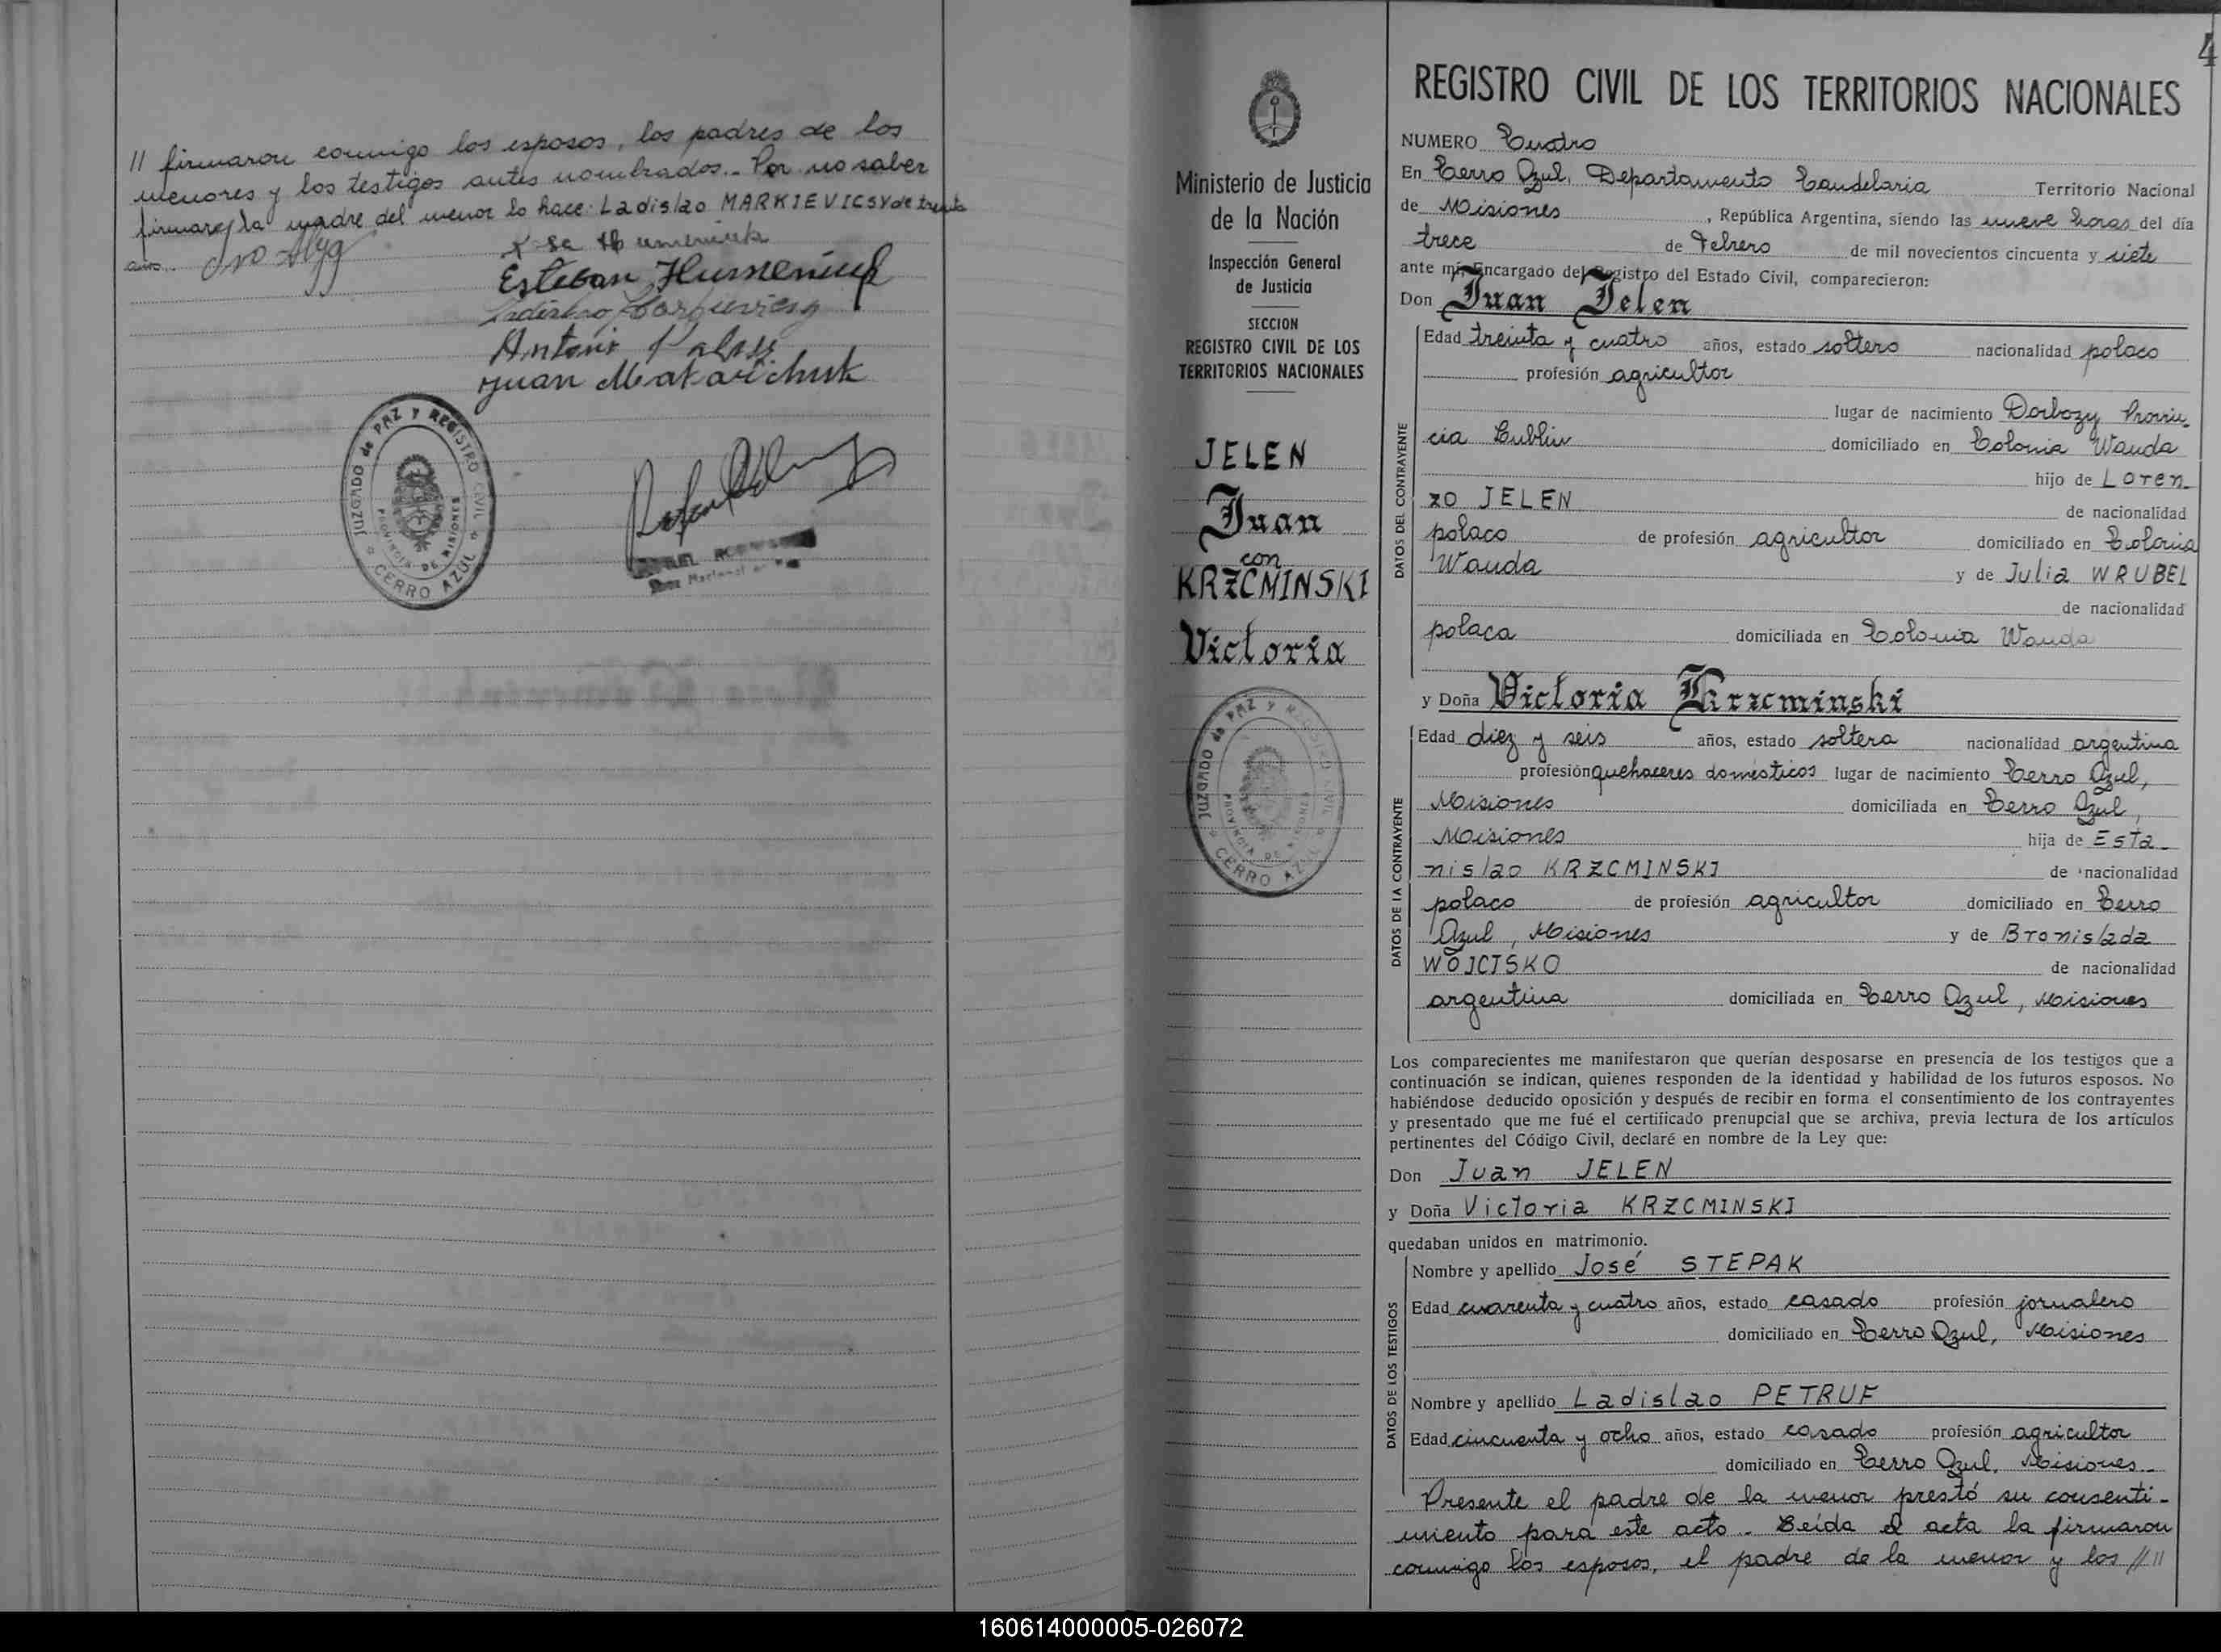 // firmaron conmigo los esposos, los padres de los
menores y los testigos antes nombrados.- Por no saber
firmar la madre del menor lo hace: Ladislao MARKIEVICSY de treinta
años..
Esteban Humeniuk
Antonio
Juan
JUZGADO de PAZ y REGISTRO CIVIL
PROVINCIA DE MISIONES
CERRO AZUL
4
REGISTRO CIVIL DE LOS TERRITORIOS NACIONALES
Ministerio de Justicia
de la Nación
Inspección General
de Justicia
SECCION
REGISTRO CIVIL DE LOS
TERRITORIOS NACIONALES
JELEN
Juan
con
KRZCMINSKI
Victoria
JUZGADO de PAZ y REGISTRO CIVIL
PROVINCIA DE MISIONES
CERRO AZUL
NUMERO Cuatro
En Cerro Azul, Departamento Candelaria Territorio Nacional
de Misiones, República Argentina, siendo las nueve horas del día
trece de Febrero de mil novecientos cincuenta y siete
ante mí, Encargado del Registro del Estado Civil, comparecieron:
Don Juan Jelen
DATOS DEL CONTRAYENTE
Edad treinta y cuatro años, estado soltero nacionalidad polaco
profesión agricultor
lugar de nacimiento Dorbozy Provin-
cia Lublin domiciliado en Colonia Wanda
hijo de Loren-
zo JELEN de nacionalidad
polaco de profesión agricultor domiciliado en Colonia
Wanda y de Julia WRUBEL
de nacionalidad
polaca domiciliada en Colonia Wanda
y Doña Victoria Krzcminski
DATOS DE LA CONTRAYENTE
Edad diez y seis años, estado soltera nacionalidad argentina
profesión quehaceres domésticos lugar de nacimiento Cerro Azul,
Misiones domiciliada en Cerro Azul,
Misiones hija de Esta-
nislao KRZCMINSKI de nacionalidad
polaco de profesión agricultor domiciliado en Cerro
Azul, Misiones y de Bronislada
WÓJCISKO de nacionalidad
argentina domiciliada en Cerro Azul, Misiones
Los comparecientes me manifestaron que querían desposarse en presencia de los testigos que a
continuación se indican, quienes responden de la identidad y habilidad de los futuros esposos. No
habiéndose deducido oposición y después de recibir en forma el consentimiento de los contrayentes
y presentado que me fué el certificado prenupcial que se archiva, previa lectura de los artículos
pertinentes del Código Civil, declaré en nombre de la Ley que:
Don Juan JELEN
y Doña Victoria KRZCMINSKI
quedaban unidos en matrimonio.
DATOS DE LOS TESTIGOS
Nombre y apellido José STEPAK
Edad cuarenta y cuatro años, estado casado profesión jornalero
domiciliado en Cerro Azul, Misiones
Nombre y apellido Ladislao PETRUF
Edad cincuenta y ocho años, estado casado profesión agricultor
domiciliado en Cerro Azul, Misiones.-
Presente el padre de la menor prestó su consenti-
miento para este acto.- Leída el acta la firmaron
conmigo los esposos, el padre de la menor y los //
160614000005-026072